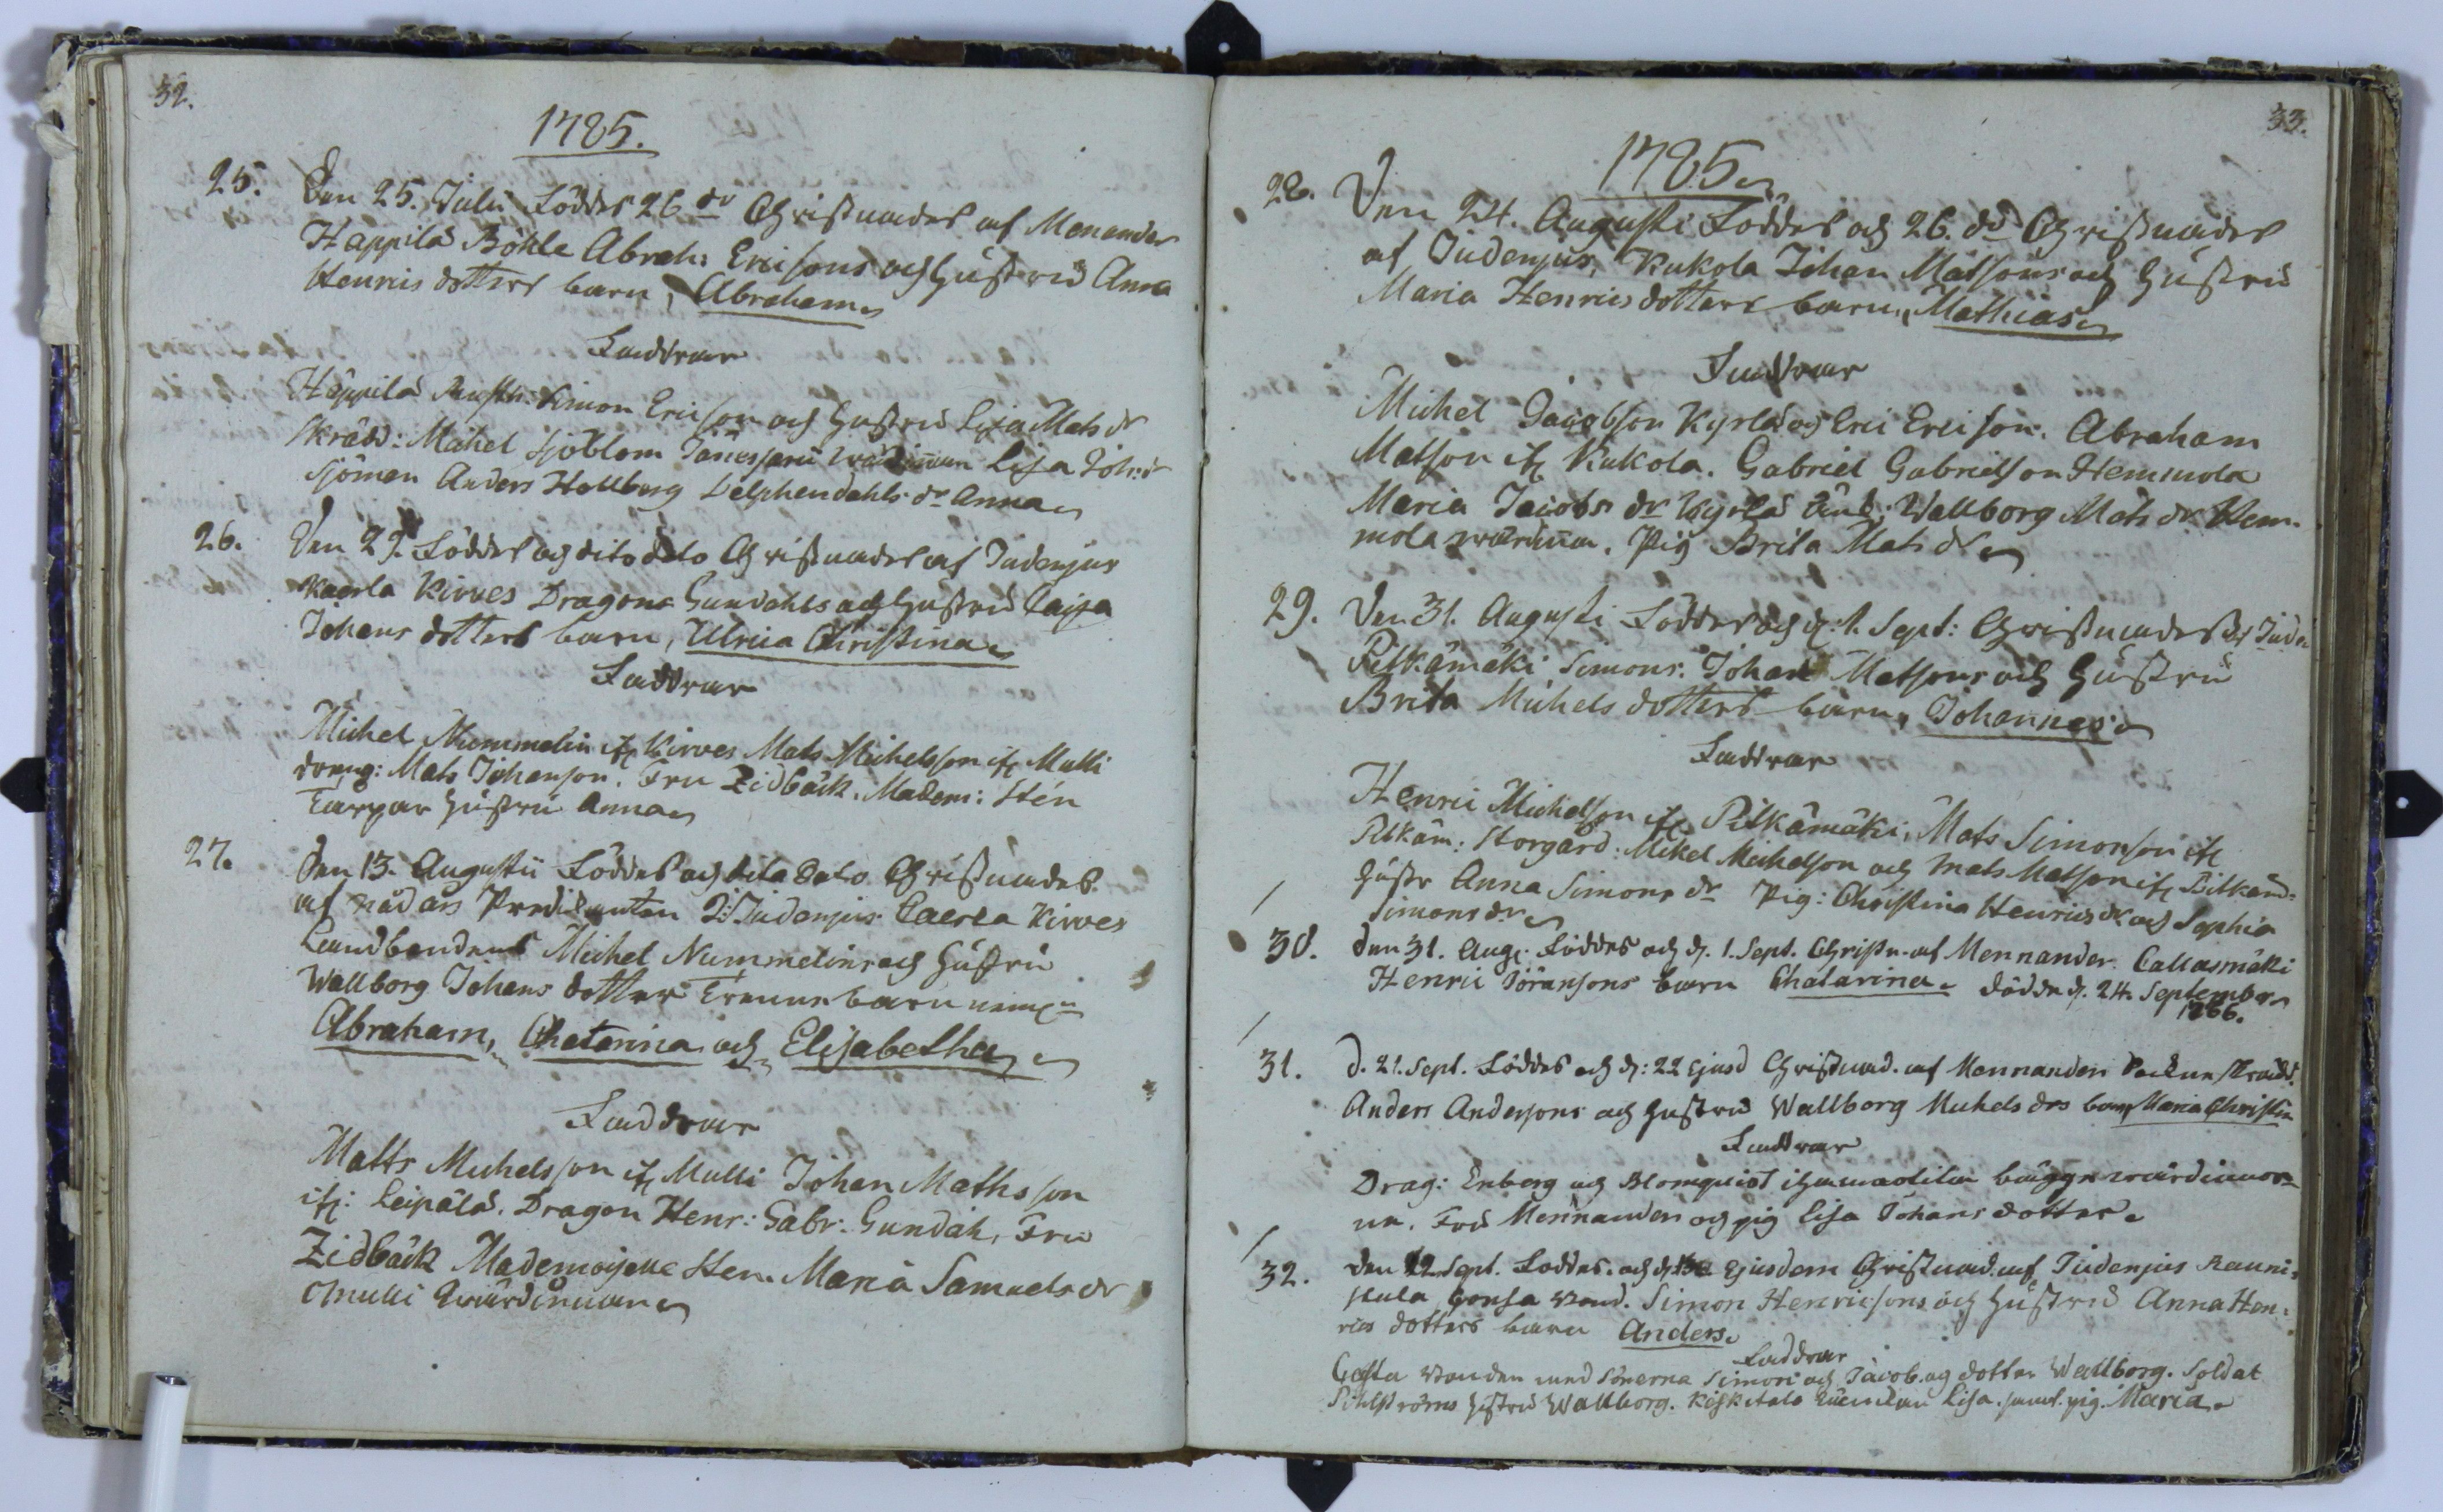 32.
1785.
25. Den 25. Julii Föddes 26 do Christnades af Menander
Happilas Böhle Abrah: Ericsons och Hustrus Anna
Henrics dotters barn, Abraham
Faddrar
Happilas Simon Ericson och Hustru Lisa Mats dr
Skrädd: Michel Sjöblom Wärdinnan Lisa Joh: dr
Sjöman Anders Hallberg dr Anna
26. Den 29. Föddes och dito dato Christnades af Indenjus
Kaerla Kirves Dragons Gundahls och Hustrus Caisa
Johans dotters barn, Ulrica Christina
Faddrar
Michel Nummelin ifr Kirves Mats Michelsson ifr Mulli
dreng: Mats Johanson. Fru Zidbäck. Madem: Stén
Hustru Anna
27. Den 13. Augustii Föddes och dito dato Christnades
af nådårs Predikanten Indenjus Caerla Kirves
Landbondens Michel Nummelins och Hustrus
Wallborg Johans dotter Trenne barn neml:n
Abraham, Chatarina och Elisabetha
Faddrar
Matts Michelsson ifr Mulli Johan Mathsson
ifr: Leipälä. Dragon Henr: Gabr: Gundah, Fru
Zidbäck Mademoiselle Sten. Maria Samuels dr
Mulli Wärdinnan
33.
1785
28. Den 24. Augusti Föddes och 26. do Christnades
af Indenjus, Kukola Johan Matsons och Hustrus
Maria Henrics dotters barn, Mathias
Faddrar
Michel Jacobson Kyrlä och Eric Ericson. Abraham
Matson ifr Kukola. Gabriel Gabrielson Hemmola
Maria Jacobs dr Kyrlä Wallborg Mats dr Hem-
mola wärdinna. Pig Brita Mats dr
29. Den 31. Augusti Föddes och d: 1. Sept: Christnades af Inde:
Pitkämäki Simons. Johan Matsons och Hustrus
Brita Michels dotters barn, Johannes
Faddrar
Henric Michelson ifr Pitkämäki, Mats Simonson ifr
Pitkäm: Storgård: Mikel Michelson och Mats Matson ifr Pitkäm:
Hustr Anna Simons dr Pig: Christina Henrics dr och Sophia
Simons dr
30. Den 31. Aug: Föddes och d. 1. Sept. Christn. af Mennander. Callasmäki
Henric Göransons barn Chatarina. dödde d. 24. September
1786.
31. D. 21. Sept. Föddes och d: 22 Ejusd Christnad. af Mennander Skrädd.
Anders Andersons och Hustrus Wallborg Michels drs barn Maria Christin
Faddrar
Drag: Enberg och Blomquist bägge wärdinnor-
na. Fru Mennander och pig Lisa Johans dotter.
32. Den 12 Sept. Föddes. och d. 13 Ejusdem Christnad. af Indenjus Rauni-
stula Gousa Simon Henricsons och Hustrus Anna Hen-
rics dotters barn Anders.
Faddrar
Gousa med Sönerna Simon och Jacob. och dotter Wallborg. Soldat
Pihlströms Hustru Wallborg. Lisa. samt. pig. Maria.